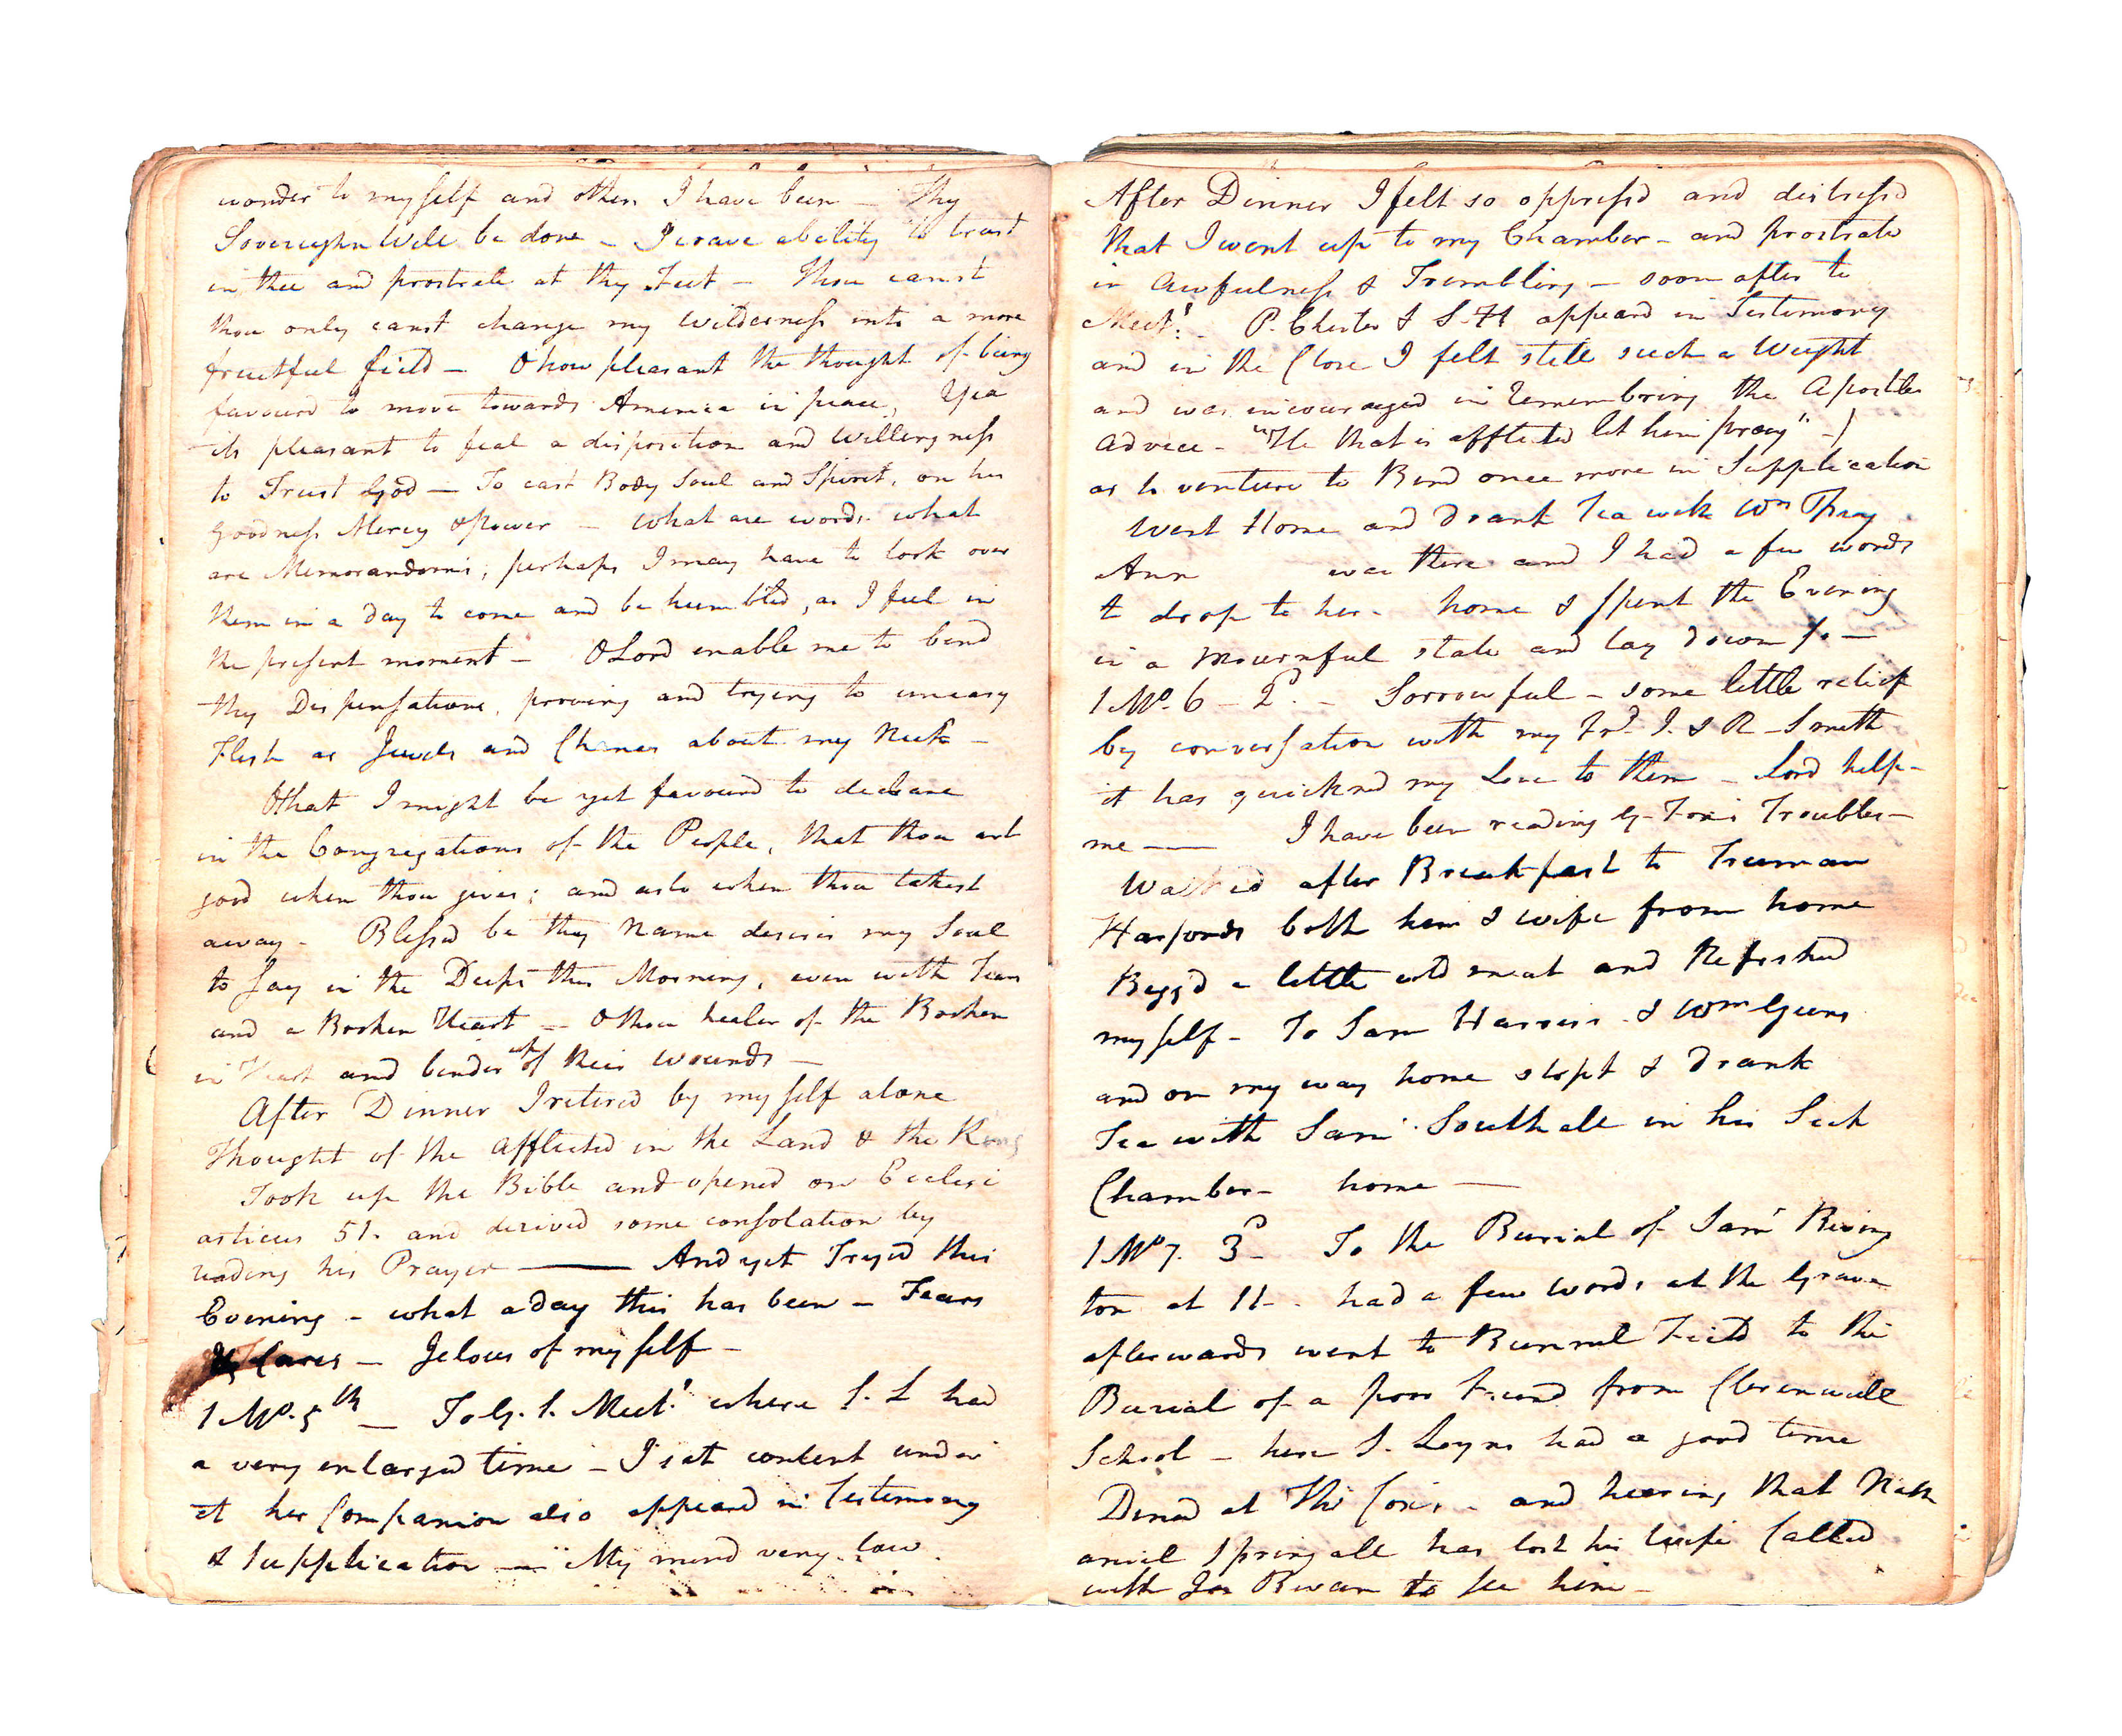 wonder to myself and others I have been – Thy
Sovereighn Will be done – I crave ability to trust
in thee and prostrate at thy Feet – thou canst
thou only canst change my Wilderness into a more
fruitful field – O how pleasant the thought of being
favourd to move towards America in peace, Yea
its pleasant to feal a disposition and Willingness
to Trust God – To cast Body Soul and Spirit, on his
Goodness Mercy & power – what are words what
are Memorandoms; perhaps I may have to look over
them in a day to come and be humbled, as I feel in
the present moment – O Lord enable me to bend
thy Dispensations, proving and trying to uneasy
Flesh as Jewels and Chanes about my Neck –
O that I might be yet favourd to declare
in the Congregations of the People, that thou art
good when thou gives; and also when thou takest
away – Blessd be thy Name desires my Soul
to say in the Deeps this Morning, even with Tears
and a Broken Heart – O thou healer of the Broken
in Heart and binder up of their wounds –
After Dinner I retired by my self alone
Thought of the afflicted in the Land & the King
Took up the Bible and opened on Eclesi
asticus 51. and derived some consolation by
reading his Prayer — And yet Tryed this
Evening – what a day this has been – Fears
Cares – Jelous of my self –
1 Mo. 5th – To G. S. Meet.g where S. L had
a very enlarged time – I sat content under
it her Companion also appeard in Testimony
& Supplication — My mind very low
After Dinner I felt so oppressd and distressd
that I went up to my Chamber – and prostrate
in Awfulness & Trembling – soon after to
Meet.g P. Chester & S. H appeard in Testimony
and in the Close I felt still such a Weight
and was incouraged in Remembring the Apostles
Advice – "He that is afflicted let him pray" –)
as to venture to Bend once more in Supplication
Went Home and drank Tea with Wm Pray
Ann was there and I had a few words
to drop to her – home & spent the Evening
in a Mournful state and lay down so –
1 Mo. 6 – 2d. – Sorrowful – some little relief
by conversation with my frd. J. & R – Smith
it has quickned my Love to them – Lord help –
me —— I have been reading G. Foxs Troubles –
Walked after Breakfast to Truman
Harfords both him & wife from home
Beggd a little cold meat and Refreshed
my self – To Sam Harris & Wm Guns
and on my way home stopt & Drank
Tea with Sam Southall in his Sick
Chamber – home —
1 Mo 7. 3d – To the Burial of Saml Riving
ton at 11 – had a few words at the Grave
afterwards went to Bunnel Field to the
Burial of a poor Friend from Clerenwell
School – here S. Loyns had a good time
Dined at Tho Coxs – and hearing that Nath
aniel Springall has lost his Wife Called
with Jos Bevan to see him –